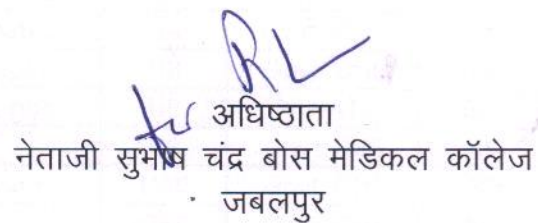 अधिष्ठाता
नेताजी सुभाष चंद्र बोस मेडिकल कॉलेज
जबलपुर